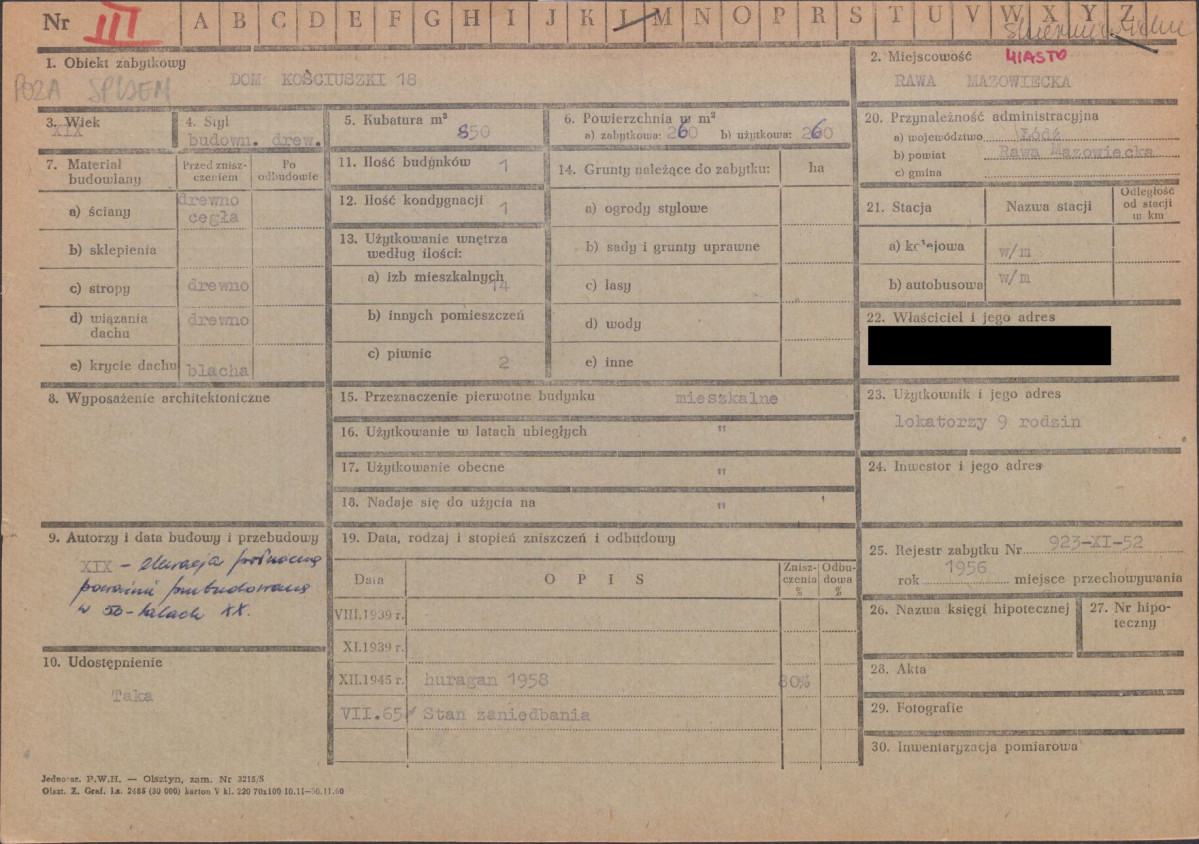 Nr III A B C D E F G H I J K L M N O P R S T U V W X Y Z
Skierniewickie
1. Obiekt zabytkowy
POZA SPISEM
DOM KOŚCIUSZKI 18
2. Miejscowość MIASTO
RAWA MAZOWIECKA
3. Wiek
XIX
4. Styl
budown. drew.
5. Kubatura m³
850
6. Powierzchnia w m²
a) zabytkowa: 260 b) użytkowa: 260
20. Przynależność administracyjna
a) województwo Łódź
b) powiat Rawa Mazowiecka
c) gmina
7. Materiał budowlany
Przed zniszczeniem
Po odbudowie
a) ściany drewno cegła
b) sklepienia
c) stropy drewno
d) wiązania dachu drewno
e) krycie dachu blacha
11. Ilość budynków 1
12. Ilość kondygnacji 1
13. Użytkowanie wnętrza
według ilości:
a) izb mieszkalnych 14
b) innych pomieszczeń
c) piwnic 2
14. Grunty należące do zabytku: ha
a) ogrody stylowe
b) sady i grunty uprawne
c) lasy
d) wody
e) inne
21. Stacja
Nazwa stacji
Odległość
od stacji
w km
a) kolejowa w/m
b) autobusowa w/m
22. Właściciel i jego adres
8. Wyposażenie architektoniczne
15. Przeznaczenie pierwotne budynku mieszkalne
16. Użytkowanie w latach ubiegłych "
17. Użytkowanie obecne "
18. Nadaje się do użycia na "
23. Użytkownik i jego adres
lokatorzy 9 rodzin
24. Inwestor i jego adres
9. Autorzy i data budowy i przebudowy
XIX – elewacja północna
poważnie przebudowana
w 50-latach XX.
10. Udostępnienie
Taka
19. Data, rodzaj i stopień zniszczeń i odbudowy
Data
O P I S
Zniszczenia %
Odbudowa %
VIII.1939 r.
XI.1939 r.
XII.1945 r. huragan 1958 80%
VII.65 Stan zaniedbania
25. Rejestr zabytku Nr 923-XI-52
rok 1956 miejsce przechowywania
26. Nazwa księgi hipotecznej
27. Nr hipo-
teczny
28. Akta
29. Fotografie
30. Inwentaryzacja pomiarowa
Olszt. Z. Graf. Lz. 2485 (30 000) karton V kl. 220 70x100 10.11—30.11.60